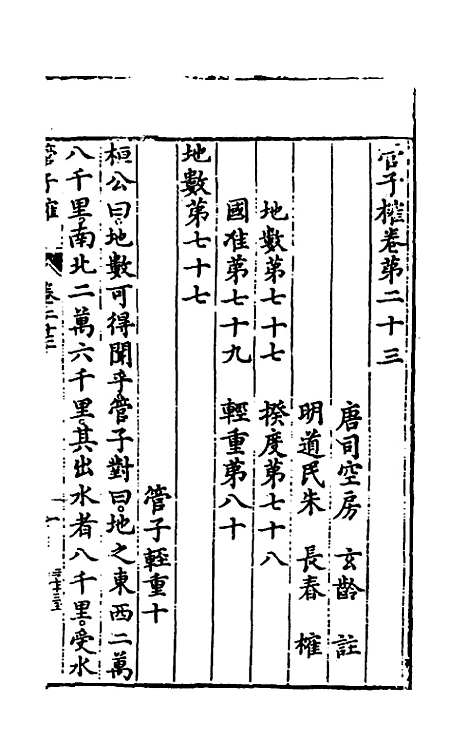 管子榷卷第二十三
唐司空房　玄齡　註
明道民朱　長春　榷
地數第七十七　揆度第七十八
國准第七十九　輕重第八十
地數第七十七
管子輕重十
桓公曰地數可得聞乎管子對曰地之東西二萬
八千里南北二萬六千里其出水者八千里受水
管子榷
卷二十三
一